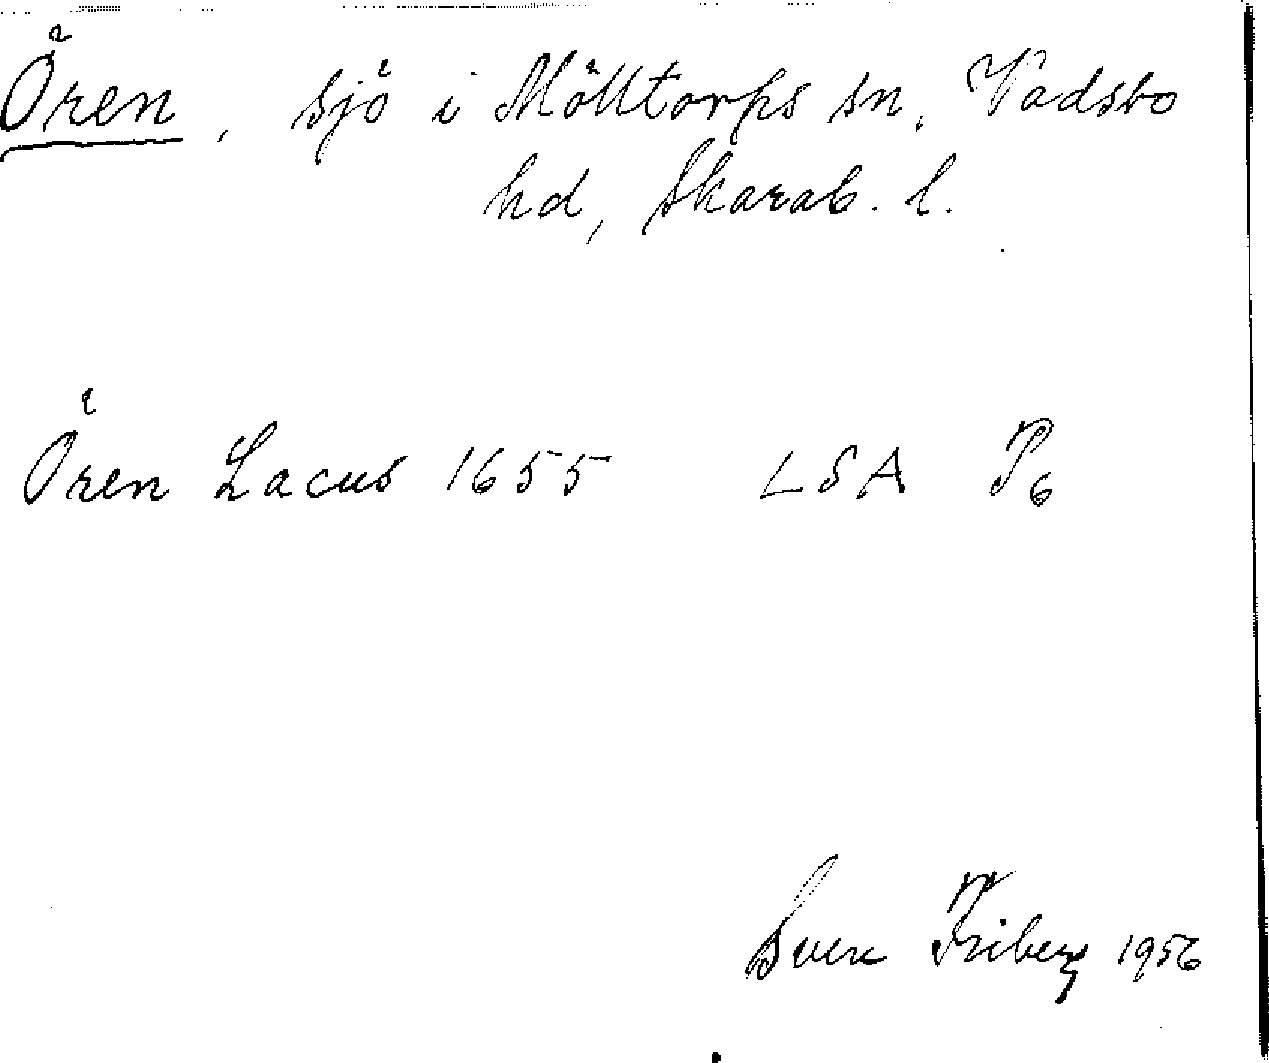 Ören, sjö i Mölltorps sn, Vadsbo
hd, Skarab. l.
Ören Lacus 1655 LSA P6
Sven Friberg 1956